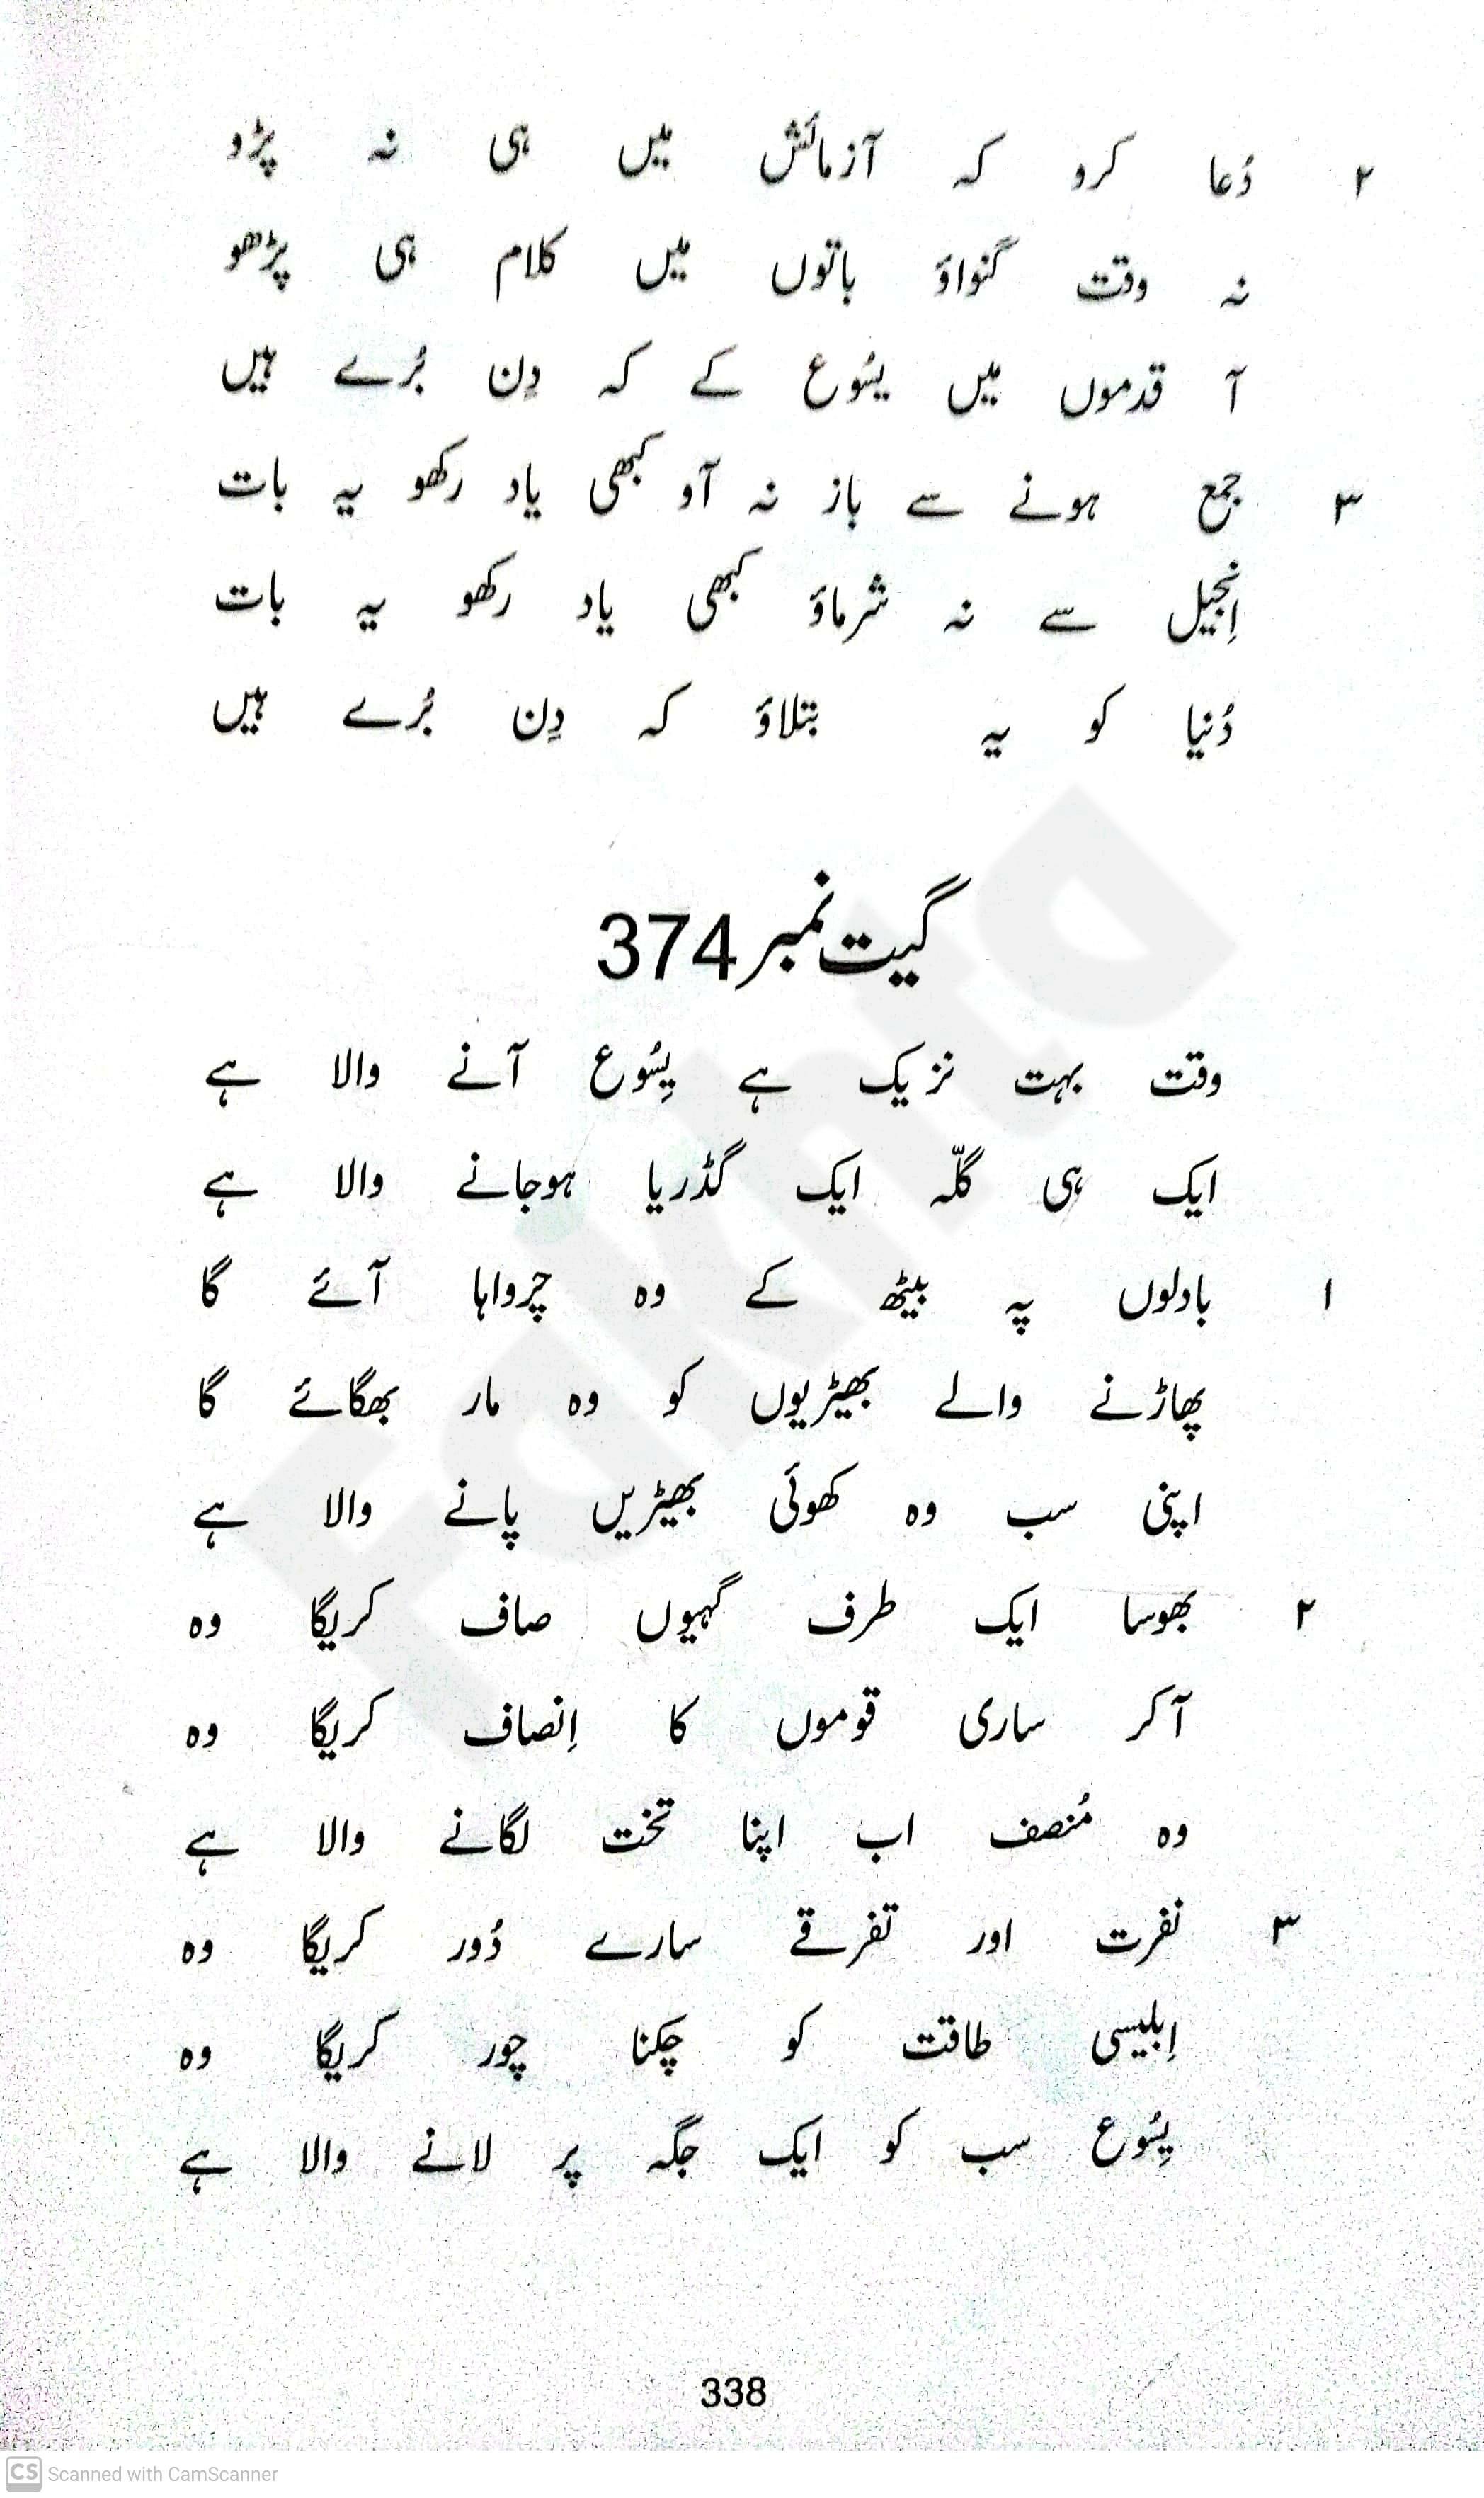 ۲ دُعا کرو کہ آزمائش میں ہی نہ پڑو
نہ وقت گنواؤ باتوں میں کلام ہی پڑھو
آ قدموں میں یسُوع کے کہ دِن بُرے ہیں
۳ جمع ہونے سے باز نہ آو کبھی یاد رکھو یہ بات
اِنجیل سے نہ شرماؤ کبھی یاد رکھو یہ بات
دُنیا کو یہ بتلاؤ کہ دِن بُرے ہیں
گیت نمبر 374
وقت بہت نزیک ہے یِسُوع آنے والا ہے
ایک ہی گلّہ ایک گڈریا ہوجانے والا ہے
۱ بادلوں پہ بیٹھ کے وہ چرواہا آئے گا
پھاڑنے والے بھیڑیوں کو وہ مار بھگائے گا
اپنی سب وہ کھوئی بھیڑیں پانے والا ہے
۲ بھوسا ایک طرف گہیوں صاف کریگا وہ
آکر ساری قوموں کا اِنصاف کریگا وہ
وہ مُنصف اب اپنا تخت لگانے والا ہے
۳ نفرت اور تفرقے سارے دُور کریگا وہ
اِبلیسی طاقت کو چکنا چور کریگا وہ
یِسُوع سب کو ایک جگہ پر لانے والا ہے
338
CS Scanned with CamScanner